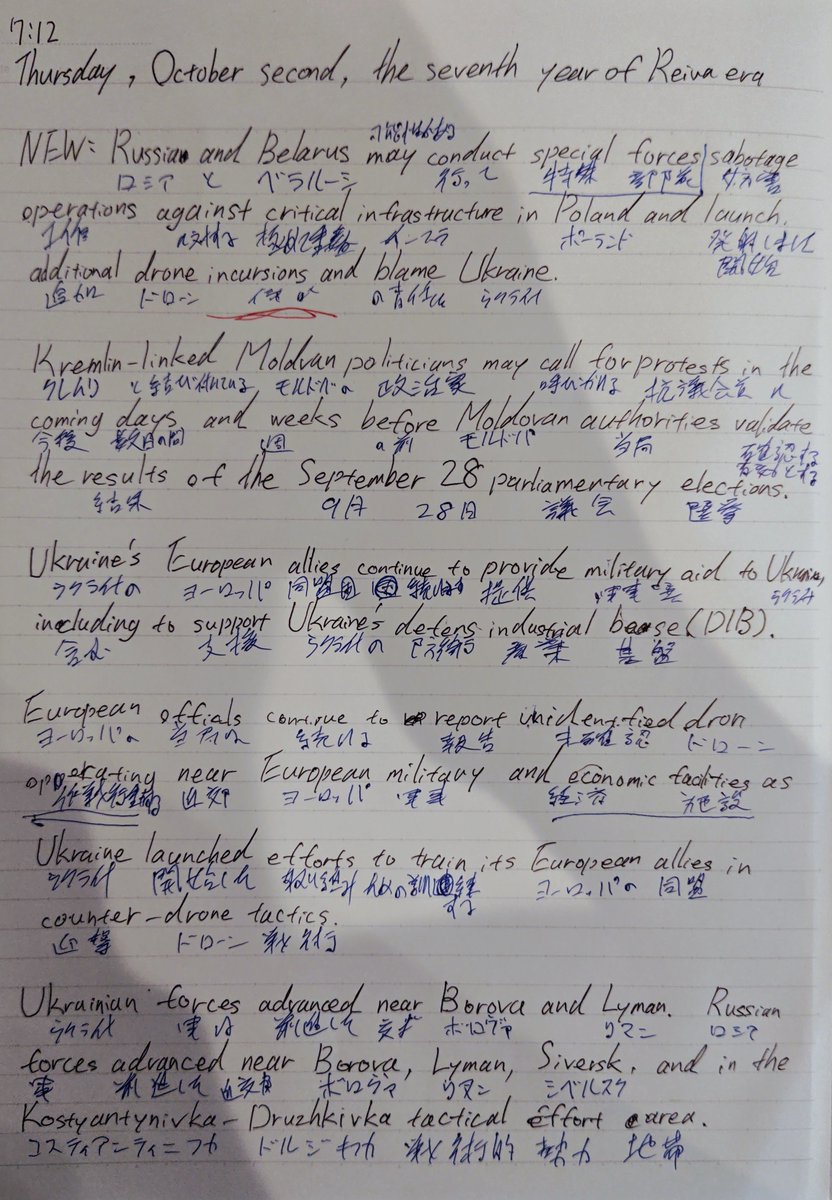 7:12
Thursday, October second, the seventh year of Reiwa era
NEW: Russian and Belarus may conduct special forces sabotage
ロシア と ベラルーシ 行って 特殊 部隊 妨害
operations against critical infrastructure in Poland and launch
工作 に対する インフラ ポーランド 発射しまして
開始
additional drone incursions and blame Ukraine.
追加 ドローン の責任に ウクライナ
Kremlin-linked Moldvan politicians may call for protests in the
クレムリン と結び付いている モルドバの 政治家 呼びかける 抗議
coming days and weeks before Moldovan authorities validate
今後 数日の間 週 の前 モルドバ 当局 確認する
the results of the September 28 parliamentary elections.
結果 9月 28日 議会 選挙
Ukraine's European allies continue to provide military aid to Ukraine,
ウクライナの ヨーロッパ 同盟国 続ける 提供 軍事 ウクライナ
including to support Ukraine's defens industrial base (DIB).
含む 支援 ウクライナの 防衛 産業 基盤
European offials continue to report unidentified dron
ヨーロッパの 当局の 続ける 報告 未確認 ドローン
operating near European military and economic facilities as
近郊 ヨーロッパ 軍事 経済 施設
Ukraine launched efforts to train its European allies in
ウクライナ 開始した 取り組み 訓練 ヨーロッパの 同盟
する
counter-drone tactics.
迎撃 ドローン 戦術
Ukrainian forces advanced near Borova and Lyman. Russian
ウクライナ 軍は 前進した ボロヴァ リマン ロシア
forces advanced near Borova, Lyman, Siversk, and in the
軍 前進した 近郊 ボロヴァ リマン シベルスク
Kostyantynivka-Druzhkivka tactical effort area.
コスティアンティニフカ ドルジキフカ 戦術的 努力 地帯